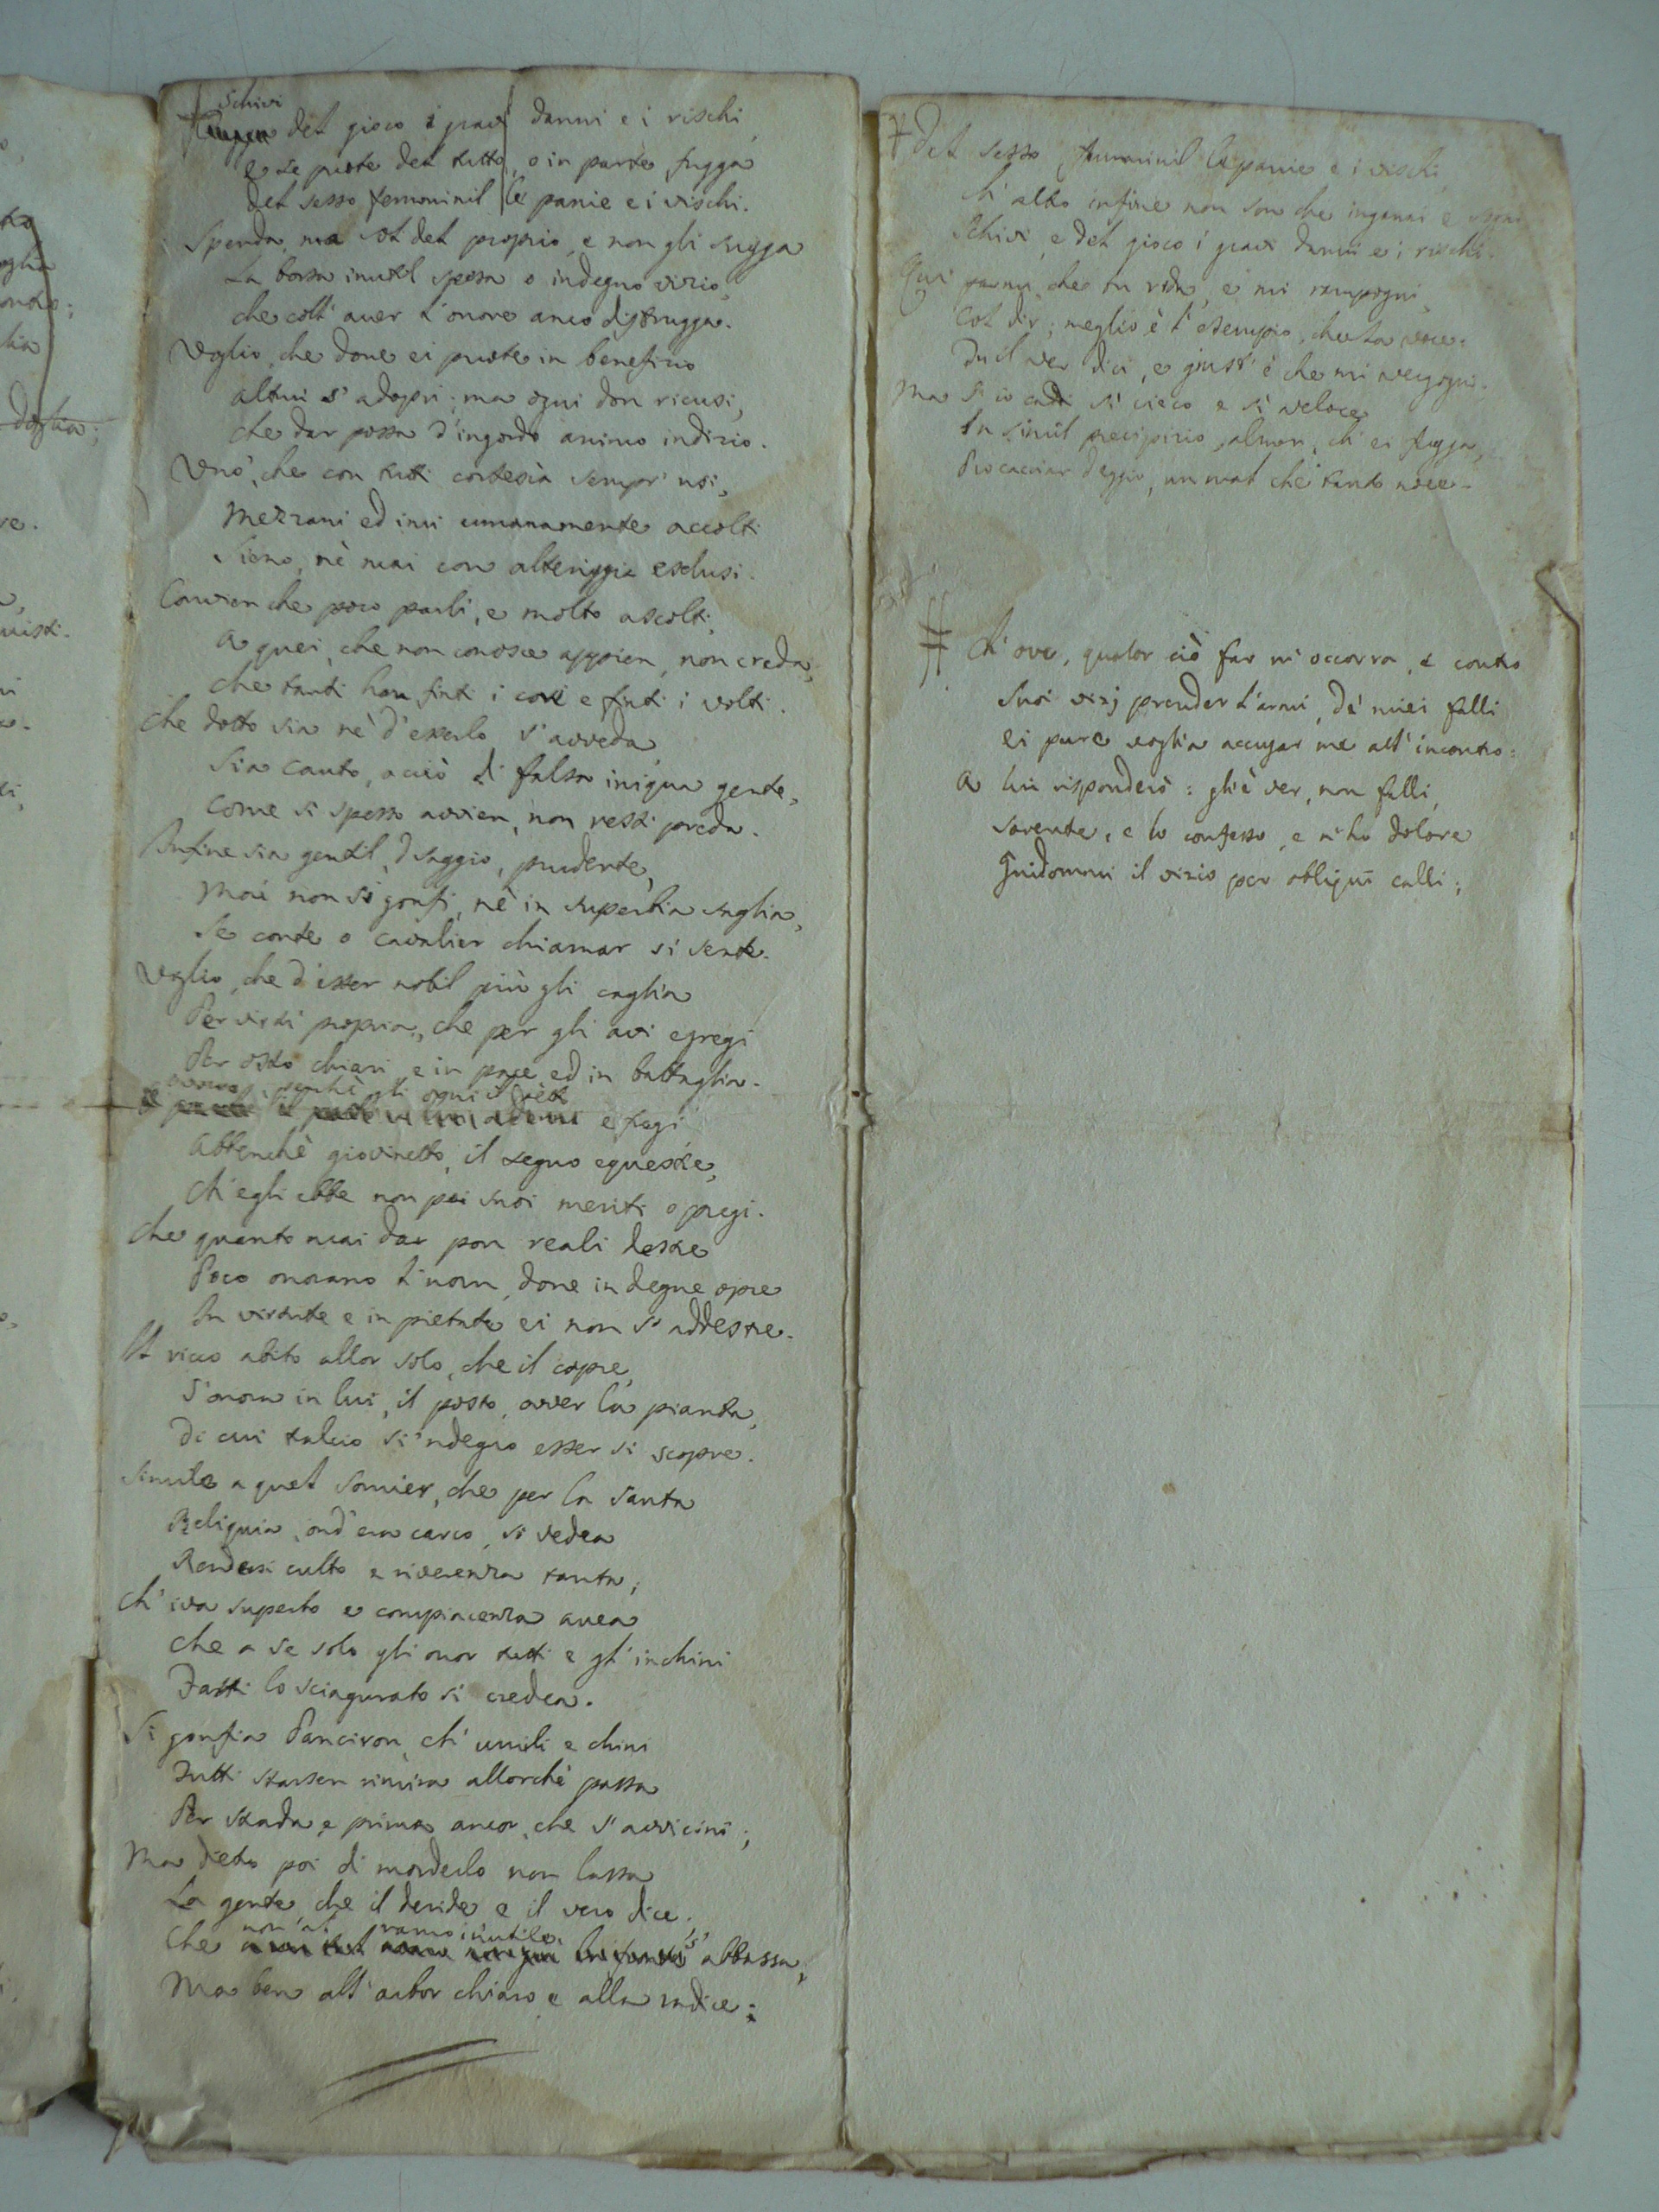 Schivi
del gioco i gravi danni e i rischi,
e se puote del tutto, o in parte fugga
del sesso femminil le panie e i vischi.
Spenda, ma sol del proprio, e non gli sugga
La borsa inutil spesa o indegno vizio,
che coll' aver l'onore anco distrugga.
Voglio, che dove ei puote in benefizio
altrui s'adopri; ma ogni don ricusi,
che dar possa d'ingordo animo indizio.
Vuo', che con tutti cortesia sempr' usi,
Mezzani ed imi umanamente accolti
Sieno, nè mai con alteriggia esclusi.
Convien che poco parli, e molto ascolti,
a quei, che non conosce appien, non creda,
che tanti han finti i cori e finti i volti.
che dotto sia nè d'esserlo s'avveda,
Sia cauto, acciò di falsa iniqua gente,
come sì spesso avvien, non resti preda.
Infine sia gentil, saggio, prudente,
Mai non si gonfi, nè in superbia saglia,
Se conte o cavalier chiamar si sente.
Voglio, che d'esser nobil più gli caglia
Per virtù propria, che per gli avi egregi
Per osto chiari, e in pace ed in battaglia.
perchè gli orni il petto
e fregi
abbenchè giovinetto, il segno equestre,
Ch'egli ebbe non pei suoi meriti o pregi.
Che quanto mai dar pon reali destre
Poco onorano l'uom, dove in degne opre
In virtute e in pietate ei non s'addestre.
Il ricco abito allor solo, che il copre,
S'onora in lui, il posto, over la pianta,
Di cui tralcio sì 'ndegno esser si scopre.
Simile a quel somier, che per la santa
Reliquia, ond'era carco, si vedea
Rendersi culto e riverenza tanta;
Ch'iva superbo e compiacenza avea
Che a se solo gli onor tutti e gl'inchini
Fatti lo sciagurato si credea.
Si gonfia Panciron, ch'umili e chini
Tutti starsen rimira allorchè passa
Per strada, e prima ancor, che s'avvicini;
Ma dietro poi di morderlo non lassa
La gente, che il deride, e il vero dice;
non al ramo inutile s'
Che abbassa,
Ma ben all'arbor chiaro e alla radice.
Del sesso femminil le panie e i vischi,
Ch'altro infine non son che inganni e sogni
Schivi, e del gioco i gravi danni e i rischi.
Qui parmi, che tu rida, e mi rampogni
Col dir; meglio è l'esempio, che la voce.
Tu il ver dici, e giust'è che mi vergogni.
Ma s'io caddi sì cieco e sì veloce
In simil precipizio, almen, ch'ei fugga,
Procacciar deggio, un mal che tanto noce.
Ch'ove, qualor ciò far mi occorra, e contro
Suoi vizj prender l'armi, de' miei falli
ei pure voglia accusar me all'incontro:
A lui risponderò: gli è ver, non falli,
sovente, e lo confesso, e n'ho dolore
Guidommi il vizio per obliqui calli;